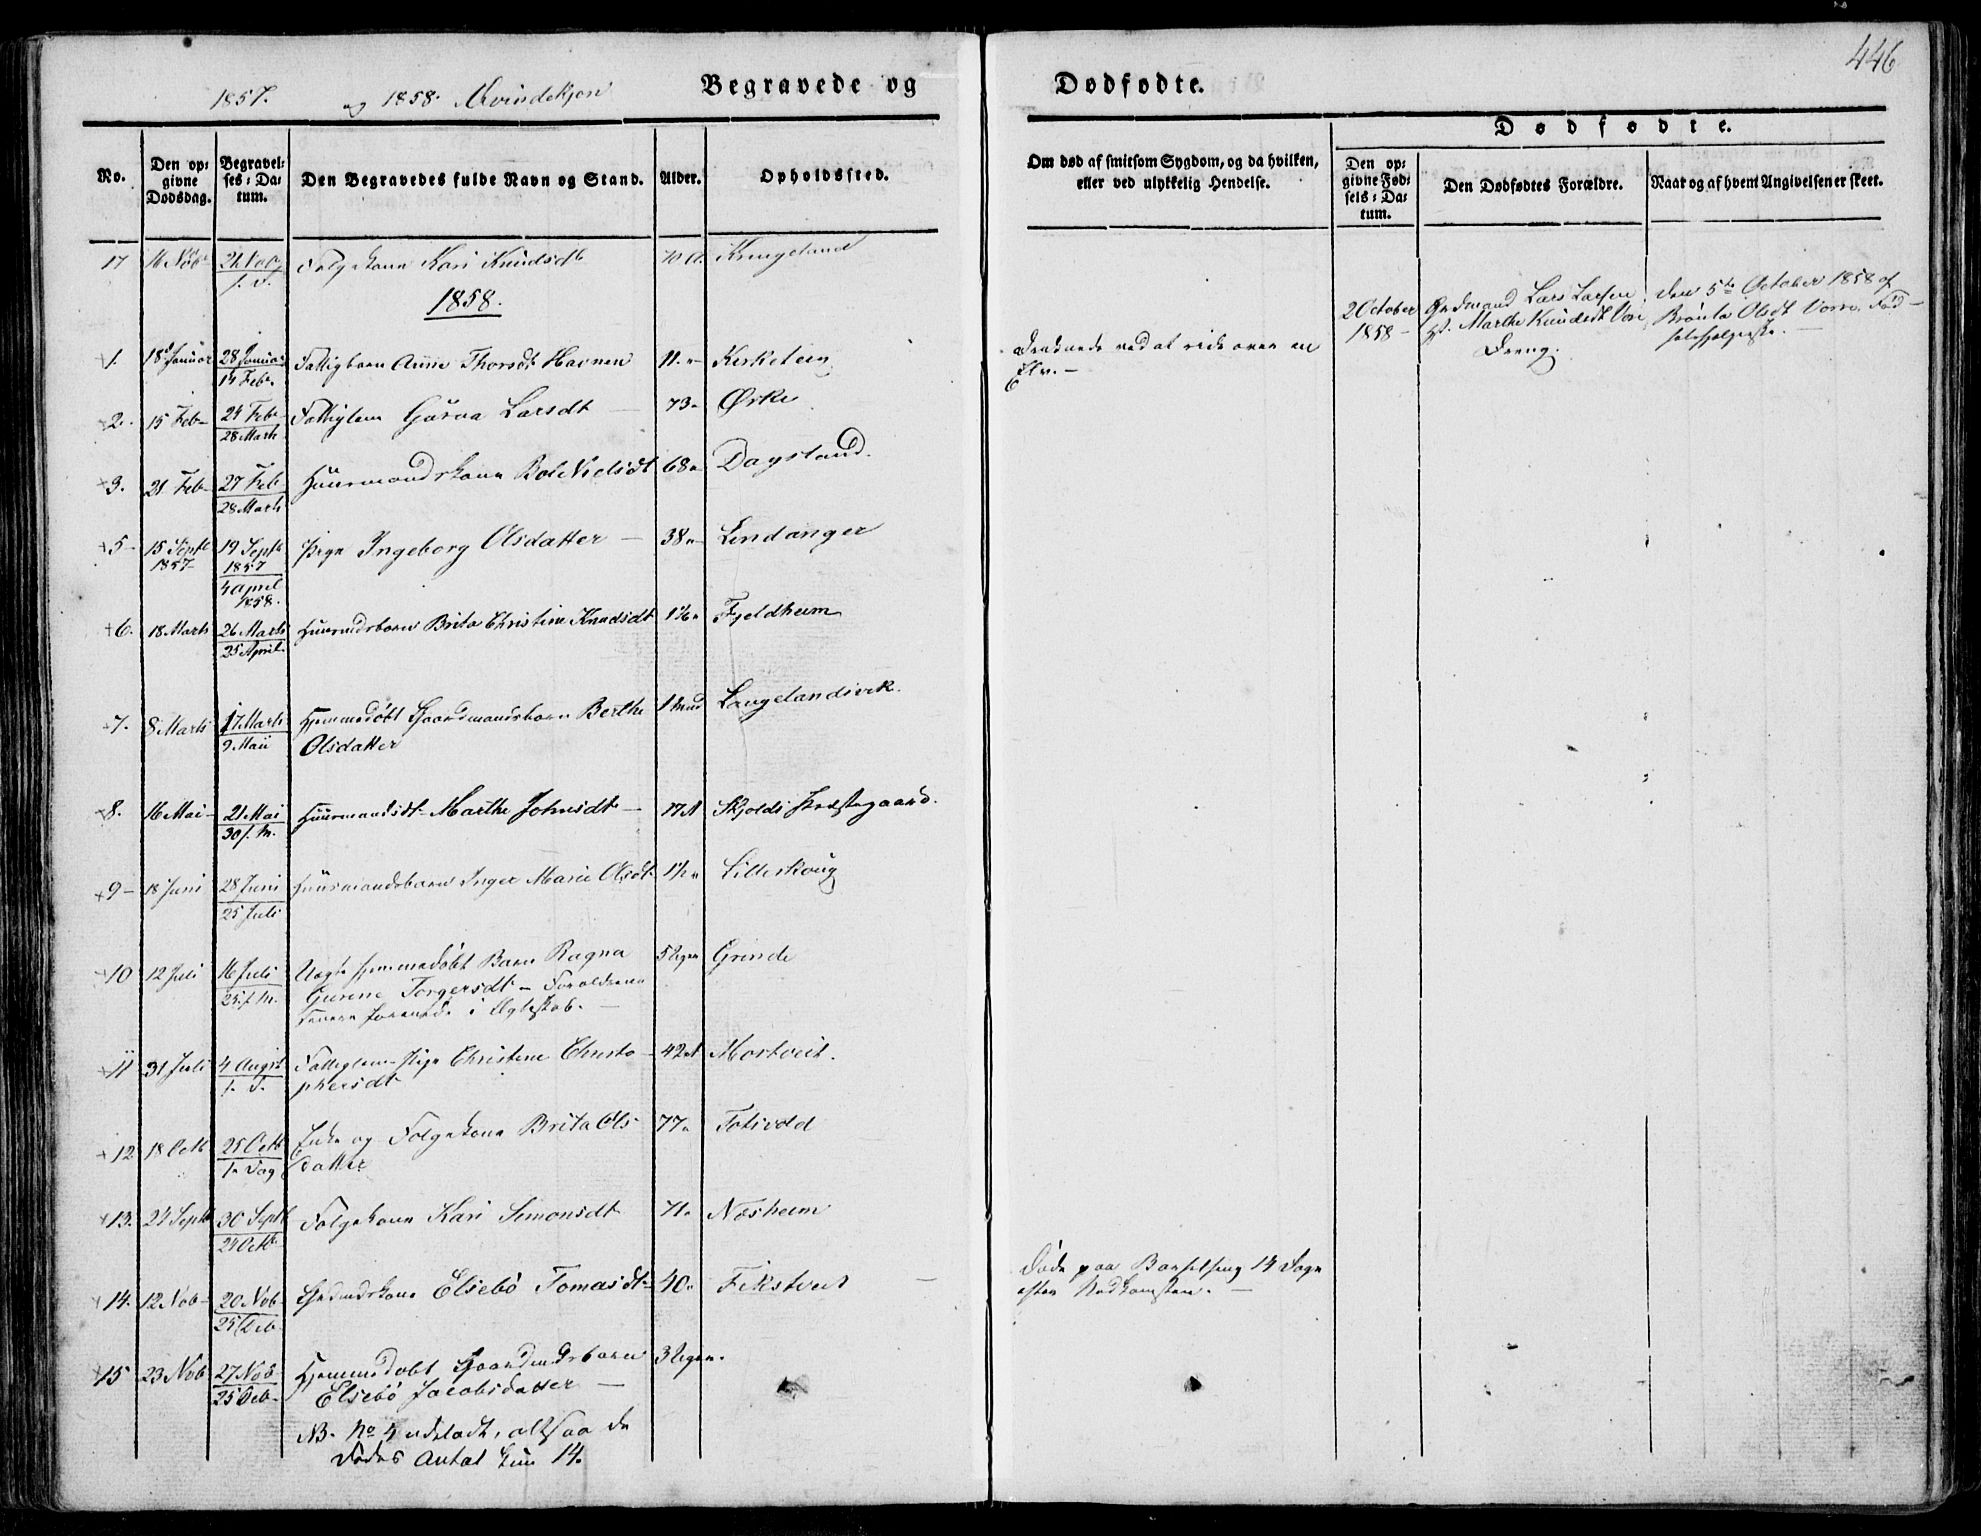 446
1857. og 1858. Qvindekjøn
Begravede og Dødfødte.
Dødfødte.
No.
Den opgivne Dødsdag.
Begravelses-Datum.
Den Begravedes fulde Navn og Stand.
Alder.
Opholdssted.
Om død af smitsom Sygdom, og da hvilken, eller ved ulykkelig Hendelse.
Den opgivne Fødsels-Datum.
Den Dødfødtes Forældre.
Naar og af hvem Angivelsen er skeet.
17 16 Nobr 21 Nobr f. D. Folgekone Kari Knudsdt 70 A. Kringeland
1858.
1. 18 Januar 28 Januar 14 Febr Fattigbarn Anne Thorsdt Havnen 11 " Kirketeig
Druknede ved at ride over en
Elv. —
2 October 1858 – Grdmand Lars Larsen
Marthe Knudsdt Vore
Dreng.
den 5te October 1858 af
Brønla Olsdt Vorre, Fød-
selshjelperske. —
2. 15 Feb 24 Febr 28 Marts Fattiglem Gurva Larsdt — 73 " Ørke
3. 21 Feb 27 Feb 28 Marts Huusmandskone Bol Nielsdt 68 " Dagsland.
5 15 Septb 1857 19 Septb 1857 4 April 1858. Pige Ingeborg Olsdatter — 38 " Lindanger
6. 18 Marts 26 Marts 25 April Huusmdsbarn Brita Christine Knudsdt Fjeldheim
7. 8 Marts 17 Marts 9 Maii Hjemmedøbt Gaardmandsbarn Berthe
Olsdatter 1 Mnd Langelandsvek.
8. 16 Mai 21 Mai 30 f. M. Huusmandsdt Marthe Johnsdt — 17 A Skjolds Præstegaard.
9 – 18 Juni 28 Juni 25 Juli Huusmandsbarn Inger Marie Olsdt 1½ " Lilleskoug
10 12 Juli 16 Juli 25 f. M. Uægte hjemmedøbt Barn Ragna
Gurine Torgersdt – Forældrene
senere forenede i Ægteskab. 5 Ugen Grinde
11 31 Juli 4 August f. D. Fattiglem Pige Christine Christo-
phersdt 42 A Mortveit.
12 18 Octb 25 Octb f. Dag Enke og Folgekone Brita Ols
datter 77 " Totsvold
13. 24 Septb 30 Septb 24 Octb Folgekone Kari Simonsdt 71 " Næsheim
14. 12 Nob 20 Nob 25 Deb Grdmdskone Elsebø Tomasdt 40 " Fikstveit —
Døde paa Barselseng 14 Dage
efter Nedkomsten. —
15 23 Nob 27 Nob 25 Deb Hjemmedøbt Gaardmdsbarn
Elsebø Jacobsdatter — 3 Ugen.
NB. No 4 udeladt, altsaa de
Dødes Antal kun 14.